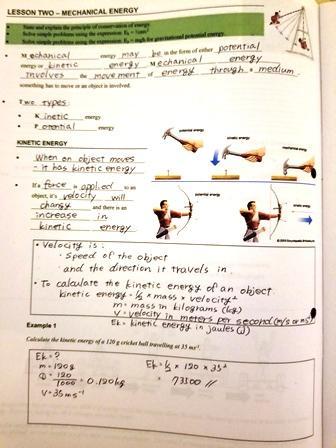 LESSON TWO – MECHANICAL ENERGY
State and explain the principle of conservation of energy
Solve simple problems using the expression: Eₖ = ½mv²
Solve simple problems using the expression: Eₚ = mgh for gravitational potential energy
• Mechanical energy may be in the form of either potential
energy or kinetic energy. Mechanical energy
involves the movement of energy through a medium
something has to move or an object is involved.
• Two types:
• Kinetic energy
• Potential energy
KINETIC ENERGY
potential energy
kinetic energy
mechanical energy
• When an object moves
- it has kinetic energy
• If a force is applied to an
object, it's velocity will
change and there is an
increase in
kinetic energy
potential energy
kinetic energy
• Velocity is:
- Speed of the object
- and the direction it travels in.
• To calculate the kinetic energy of an object.
kinetic energy = ½ * mass * velocity²
m = mass in kilograms (kg)
V = velocity in meters per second (m/s or ms⁻¹)
Ek = kinetic energy in joules (J)
Example 1
Calculate the kinetic energy of a 120 g cricket ball travelling at 35 ms⁻¹.
Ek = ?
m = 120g
120/1000 = 0.120kg
V = 35ms⁻¹
Ek = ½ × 120 × 35²
= 73500 //